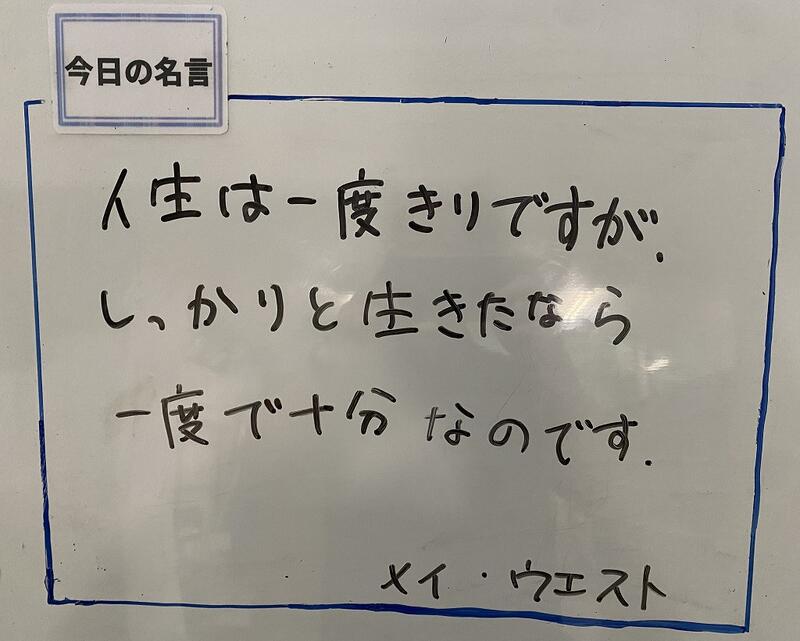 今日の名言
人生は一度きりですが.
しっかりと生きたなら
一度で十分なのです.
メイ・ウエスト